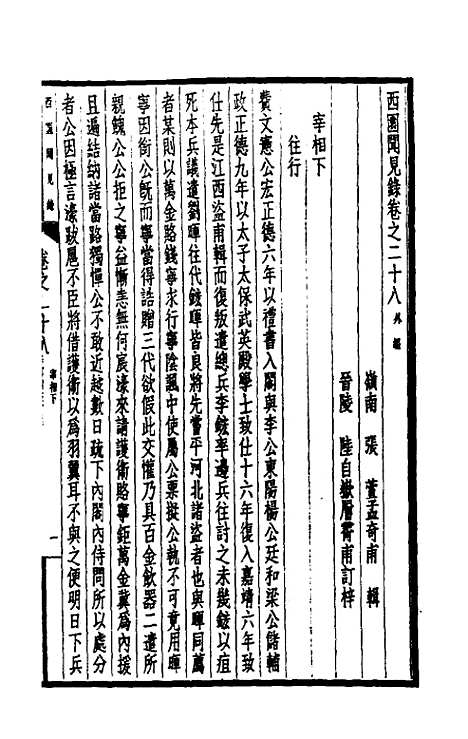 西園聞見錄卷之二十八 外編
嶺南 張 萱孟奇甫 輯
晉陵 陸自嶽層霄甫訂梓
宰相下
往行
費文憲公宏正德六年以禮書入閣與李公東陽楊公廷和梁公儲輔
政正德九年以太子太保武英殿學士致仕十六年復入嘉靖六年致
仕先是江西盜甫輯而復叛遣總兵李鋐率邊兵往討之未幾鋐以疽
死本兵議遣劉暉往代鋐暉皆良將先嘗平河北諸盜者也與暉同薦
者某則以萬金賂錢寧求行寧陰諷中使屬公票擬公執不可竟用暉
寧因銜公既而寧當得誥贈三代欲假此交懽乃具百金飲器二遣所
親餽公公拒之寧益慚恚無何宸濠來請護衛賂寧鉅萬金冀為內援
且遍結納諸當路獨憚公不敢近越數日疏下內閣內侍問所以處分
者公因極言濠跋扈不臣將借護衛以為羽翼耳不與之便明日下兵
西園聞見錄
卷之二十八 宰相下
一